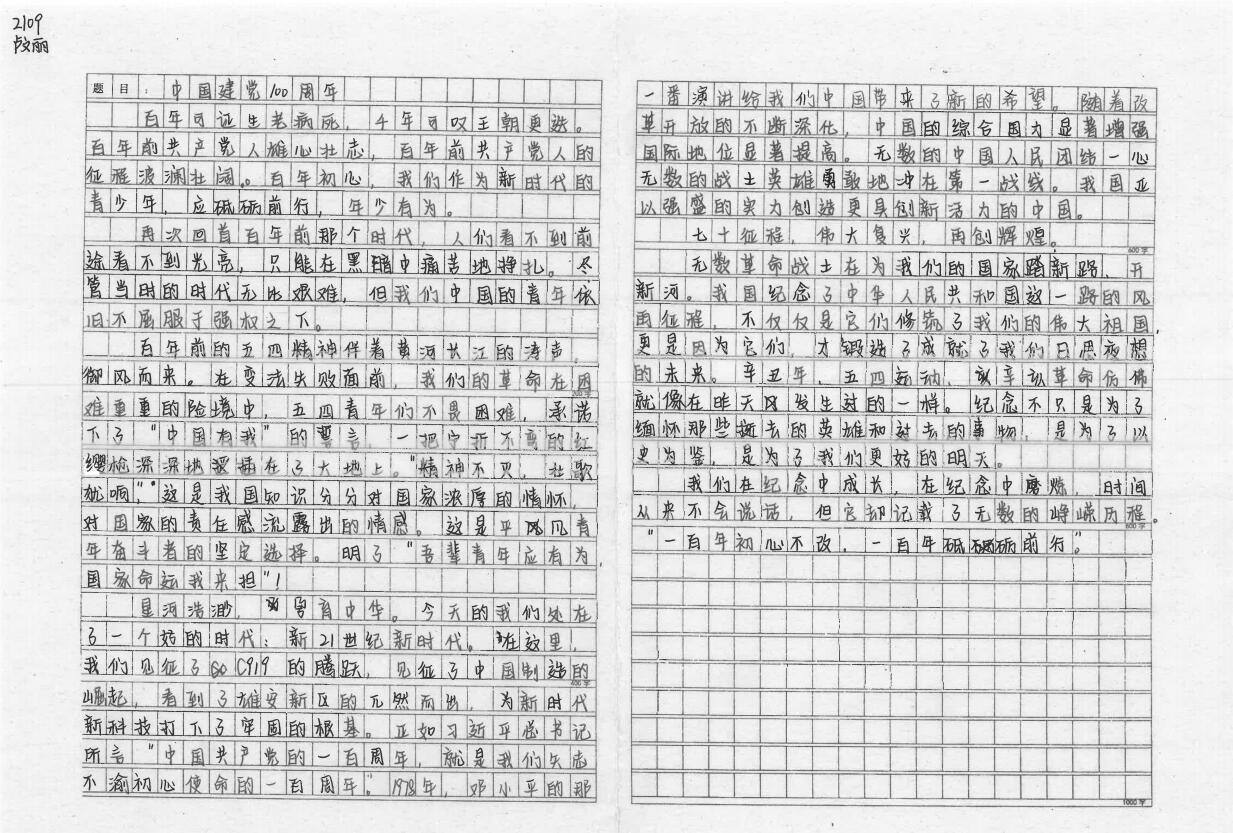 2109
卢文丽
题目：中国建党100周年
百年可证生老病死，千年可叹王朝更迭。
百年前共产党人雄心壮志，百年前共产党人的
征程波澜壮阔。百年初心，我们作为新时代的
青少年，应砥砺前行，年少有为。
再次回首百年前那个时代，人们看不到前
途看不到光亮，只能在黑暗中痛苦地挣扎。尽
管当时的时代无比艰难，但我们中国的青年依
旧不屈服于强权之下。
百年前的五四精神伴着黄河长江的涛声，
御风而来。在变法失败面前，我们的革命在困
200字
难重重的险境中，五四青年们不畏困难，承诺
下了“中国有我”的誓言，一把宁折不弯的红
缨枪深深地插在了大地上。“精神不灭，壮歌
犹响，”这是我国知识分分对国家浓厚的情怀，
对国家的责任感流露出的情感。这是平凡青
年奋斗者的坚定选择。明了“吾辈青年应有为，
国家命运我来担”！
星河浩渺，孕育中华。今天的我们处在
了一个好的时代：新21世纪新时代。在这里，
我们见征了C919的腾跃，见征了中国制造的
400字
崛起，看到了雄安新区的兀然而出，为新时代
新科技打下了牢固的根基。正如习近平总书记
所言“中国共产党的一百周年，就是我们矢志
不渝初心使命的一百周年。”1978年，邓小平的那
一番演讲给我们中国带来了新的希望。随着改
革开放的不断深化，中国的综合国力显著增强
国际地位显著提高。无数的中国人民团结一心
无数的战士英雄勇敢地冲在第一战线。我国正
以强盛的实力创造更具创新活力的中国。
七十征程，伟大复兴，再创辉煌。
600字
无数革命战士在为我们的国家踏新路，开
新河。我国纪念了中华人民共和国这一路的风
雨征程，不仅仅是它们修筑了我们的伟大祖国，
更是因为它们，才锻造了成就了我们日思夜想
的未来。辛丑年，五四运动，辛亥革命仿佛
就像在昨天发生过的一样。纪念不只是为了
缅怀那些逝去的英雄和过去的事物，是为了以
史为鉴，是为了我们更好的明天。
我们在纪念中成长，在纪念中磨炼，时间
从来不会说话，但它却记载了无数的峥嵘历程。
800字
“一百年初心不改，一百年砥砺前行。”
1000字